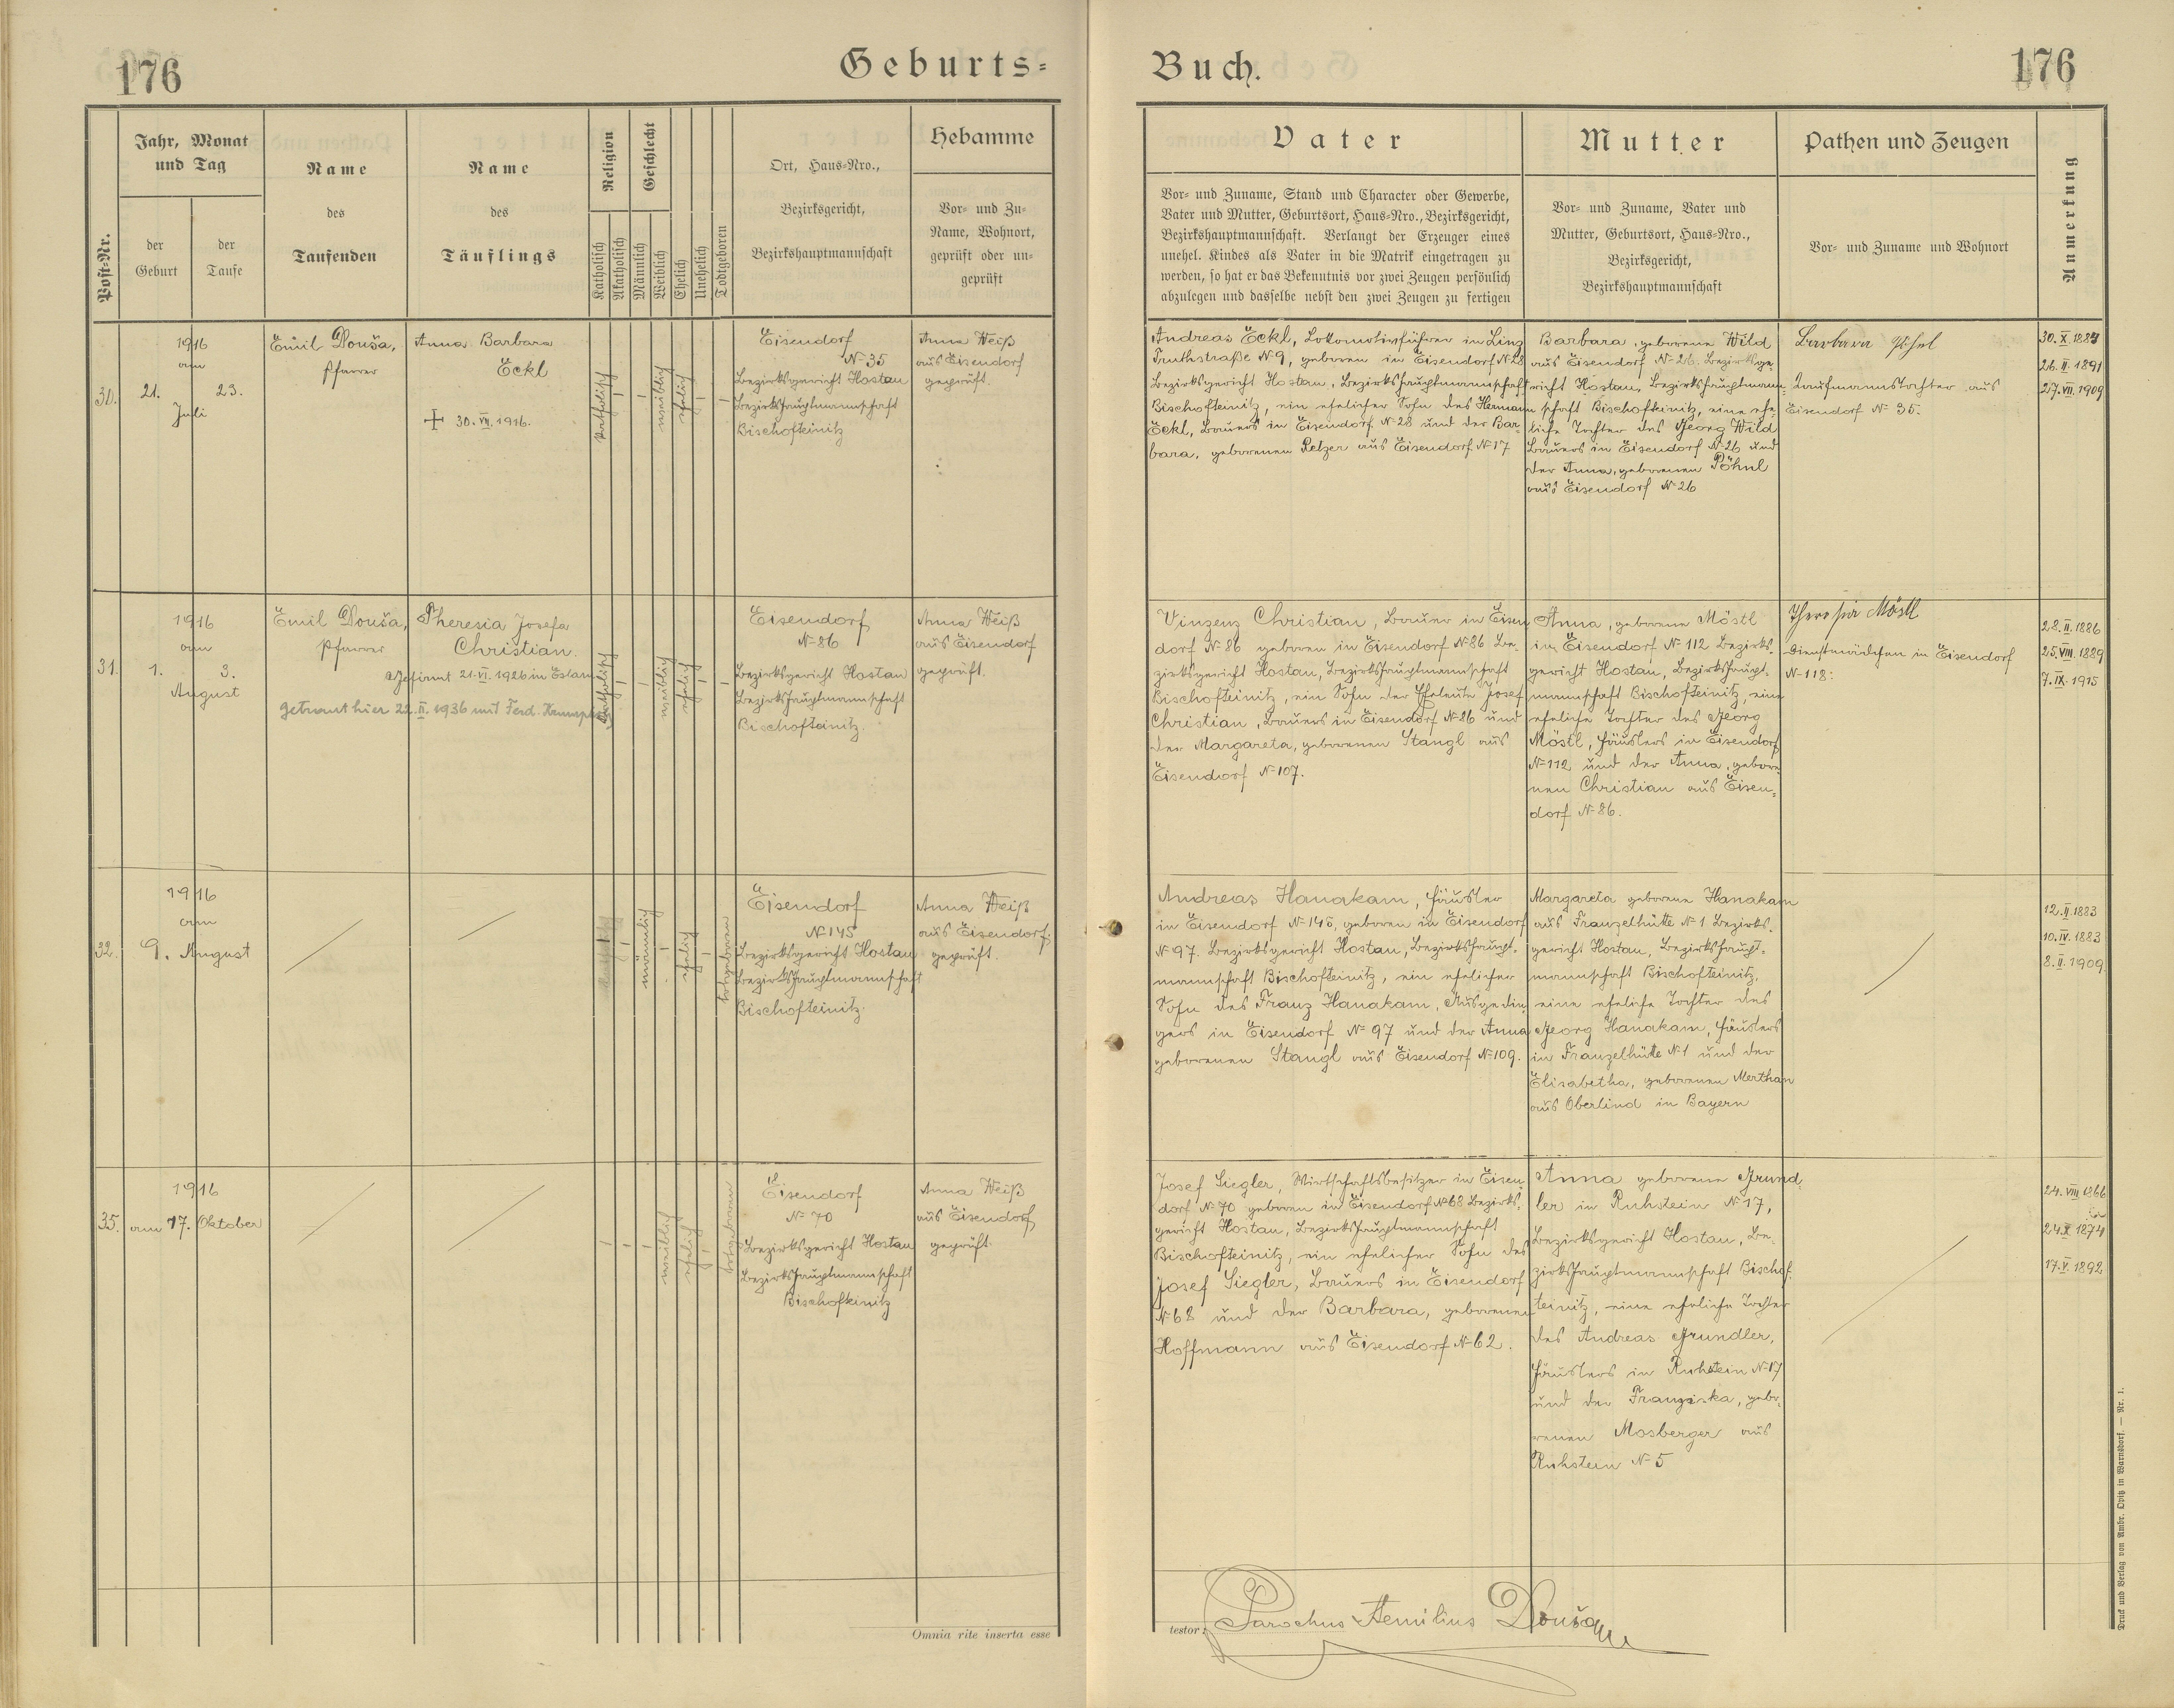 176
Geburts=
Jahr, Monat
und Tag
der
Geburt
der
Taufe
Post=Nr.
Name
des
Taufenden
Name
des
Täuflings
Religion
Katholisch
Akatholisch
Geschlecht
Männlich
Weiblich
Ehelich
Unehelich
Todtgeboren
Ort, Haus=Nro.,
Bezirksgericht,
Bezirkshauptmannschaft
Hebamme
Vor= und Zu=
Name, Wohnort,
geprüft oder un=
geprüft
30.
1916
am
21. 23.
Juli
Emil Douša,
Pfarrer
Anna Barbara
Eckl
+ 30. VII. 1916.
katholisch
weiblich
ehelich
Eisendorf
No 35
Bezirksgericht Hostau
Bezirkshauptmannschaft
Bischofteinitz
Anna Weiß
aus Eisendorf
geprüft.
31.
1916
am
1. 3.
August
Emil Douša,
Pfarrer
Theresia Josefa
Christian.
Gefirmt 21. VI. 1926 in
getraut hier 22. II. 1936 mit Ferd.
katholisch
weiblich
ehelich
Eisendorf
No 86
Bezirksgericht Hostau
Bezirkshauptmannschaft
Bischofteinitz.
Anna Weiß
aus Eisendorf
geprüft.
32.
1916
am
9. August
männlich
ehelich
totgeboren
Eisendorf
No 145
Bezirksgericht Hostau
Bezirkshauptmannschaft
Bischofteinitz.
Anna Weiß
aus Eisendorf.
geprüft.
35.
1916
am 17. Oktober
weiblich
ehelich
totgeboren
Eisendorf
No 70
Bezirksgericht Hostau
Bezirkshauptmannschaft
Bischofteinitz
Anna Weiß
aus Eisendorf
geprüft.
Omnia rite inserta esse
Buch.
176
Vater
Vor= und Zuname, Stand und Character oder Gewerbe,
Vater und Mutter, Geburtsort, Haus=Nro., Bezirksgericht,
Bezirkshauptmannschaft. Verlangt der Erzeuger eines
unehel. Kindes als Vater in die Matrik eingetragen zu
werden, so hat er das Bekenntnis vor zwei Zeugen persönlich
abzulegen und dasselbe nebst den zwei Zeugen zu fertigen
Mutter
Vor= und Zuname, Vater und
Mutter, Geburtsort, Haus=Nro.,
Bezirksgericht,
Bezirkshauptmannschaft
Pathen und Zeugen
Vor= und Zuname und Wohnort
Anmerkung
Andreas Eckl, Lokomotivführer in Linz
No 9, geboren in Eisendorf No 28
Bezirksgericht Hostau, Bezirkshauptmannschaft
Bischofteinitz, ein ehelicher Sohn des Hermann
Eckl, Bauers in Eisendorf No 28 und der Bar=
bara, geborenen Retzer aus Eisendorf No 17
Barbara, geborene Wild
aus Eisendorf No 26. Bezirksge=
richt Hostau, Bezirkshauptmann=
schaft Bischofteinitz, eine ehe=
liche Tochter des Georg Wild
Bauers in Eisendorf No 26 und
der Anna, geborenen Pöhnl
aus Eisendorf No 26
Barbara
Kaufmannstochter aus
Eisendorf No 35.
30. X. 1887
26. II. 1891
27. VII. 1909
Vinzenz Christian, Bauer in Eisen
dorf No 86 geboren in Eisendorf No 86 Be=
zirksgericht Hostau, Bezirkshauptmannschaft
Bischofteinitz, ein Sohn der Eheleute Josef
Christian, Bauers in Eisendorf No 86 und
der Margareta, geborenen Stangl aus
Eisendorf No 107.
Anna, geborene Möstl
in Eisendorf No 112 Bezirks=
gericht Hostau, Bezirkshaupt=
mannschaft Bischofteinitz, eine
eheliche Tochter des Georg
Möstl, Häuslers in Eisendorf
No 112 und der Anna, gebore
nen Christian aus Eisen=
dorf No 86.
Theresia Möstl
Dienstmädchen in Eisendorf
No 118.
28. II. 1886
25. VIII. 1889
7. IX. 1915
Andreas Hanakam, Häusler
in Eisendorf No 145, geboren in Eisendorf
No 97. Bezirksgericht Hostau, Bezirkshaupt=
mannschaft Bischofteinitz, ein ehelicher
Sohn des Franz Hanakam, Ausgedin
gers in Eisendorf No 97 und der Anna
geborenen Stangl aus Eisendorf No 109.
Margareta geborene Hanakam
aus Franzelhütte No 1 Bezirks=
gericht Hostau, Bezirkshaupt=
mannschaft Bischofteinitz,
eine eheliche Tochter des
Georg Hanakam, Häuslers
in Franzelhütte No 1 und der
Elisabetha, geborenen Merthan
aus Oberlind in Bayern
12. II. 1883
10. IV. 1883
8. II. 1909.
Josef Siegler, Wirtschaftsbesitzer in Eisen=
dorf No 70 geboren in Eisendorf No 68 Bezirks=
gericht Hostau, Bezirkshauptmannschaft
Bischofteinitz, ein ehelicher Sohn des
Josef Siegler, Bauers in Eisendorf
No 68 und der Barbara, geborenen
Hoffmann aus Eisendorf No 62.
Anna geborene Grund=
ler in Ruhstein No 17,
Bezirksgericht Hostau, Be=
zirkshauptmannschaft Bischof=
teinitz, eine eheliche Tochter
des Andreas Grundler,
Häuslers in Ruhstein No 17
und der Franziska, gebo=
renen Mosberger aus
Ruhstein No 5
24. VIII. 1866
24. X. 1874
17. V. 1892
testor:
Parochus Aemilius Douša
Druck und Verlag von Ambr. Opitz in Warnsdorf. — Nr. 1.